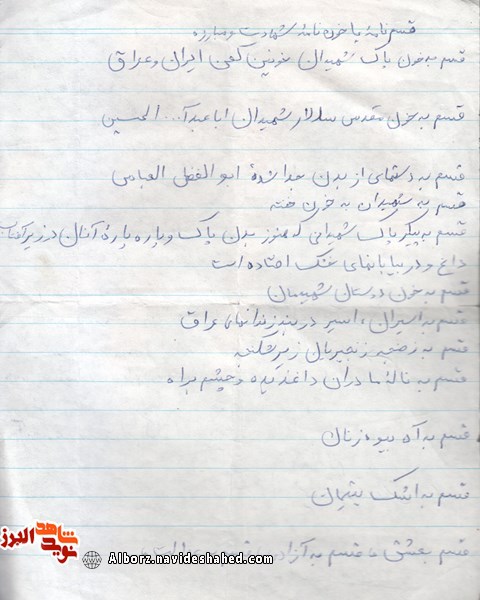 قسم نامه یا خون نامه شهادت و مبارزه
قسم به خون پاک شهیدان خونین کفن ایران و عراق
قسم به خون مقدس سالار شهیدان اباعبدا... الحسین
قسم به دستهای از بدن جدا شدهٔ ابوالفضل العباس
قسم به شهیدان به خون خفته
قسم به پیکر پاک شهیدانی که هنوز بدن پاک و پاره پارهٔ آنان در زیر آفتاب
داغ و در بیابانهای خشک افتاده است
قسم به خون دوستان شهیدمان
قسم به اسیران، اسیر در بند زندانهای عراق
قسم به ضجه زنجیریان زیر شکنجه
قسم به نالهٔ مادران داغدیده و چشم براه
قسم به آه بیوه زنان
قسم به اشک یتیمان
قسم به عشق ما قسم به آزاد
شاهد
نوید البرز
Alborz.navideshahed.com